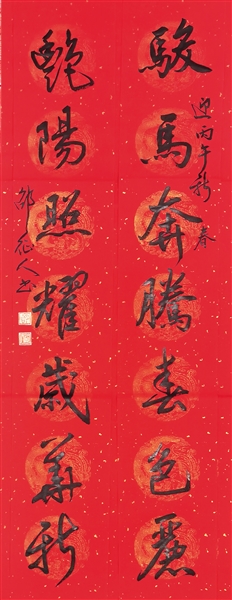 迎丙午新春
駿馬奔騰春色麗
艷陽照耀歲華新
邵化人書